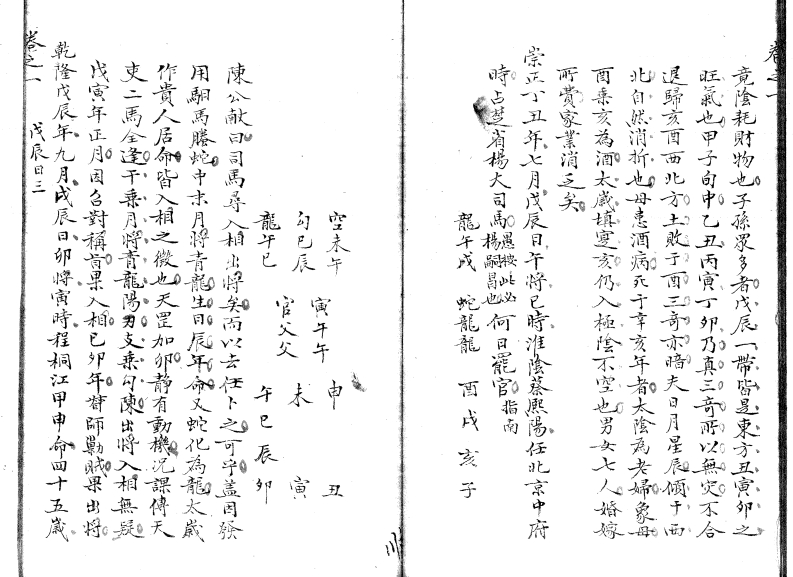 卷之一
竟陰耗財物也子孫眾多者戊辰一帶皆是東方丑寅卯之
旺氣也甲子旬中乙丑丙寅丁卯乃真三奇所以無灾不合
退歸亥酉西北方土敗于酉三奇亦暗夫日月星辰傾于西
北自然消折也母患酒病死于辛亥年者太陰為老婦象母
酉乗亥為酒太歲填寔亥仍入極陰不空也男女七人婚嫁
所費家業消乏矣
崇正丁丑年七月戊辰日午將巳時淮陰蔡熙陽任北京中府
時占楚省楊大司馬愚按此必楊嗣昌也何日罷官指南
龍午戌 蛇龍龍 酉戌亥子
空未午 寅午午 申 丑
勾巳辰 官父父 未 寅
龍午巳 午巳辰卯
陳公献曰司馬尋入相出將矣而以去任卜之可乎蓋因發
用馹馬螣蛇中末月將青龍生日辰年命又蛇化為龍太歲
作貴人居命皆入相之徵也天罡加卯静有動機况課傳天
吏二馬全逢干乗月將青龍陽刃支乗勾陳出將入相無疑
戊寅年正月因召對稱旨果入相巳卯年督師勦賊果出將
乾隆戊辰年九月戊辰日卯將寅時程桐江甲申命四十五歲
卷之一 戊辰日三